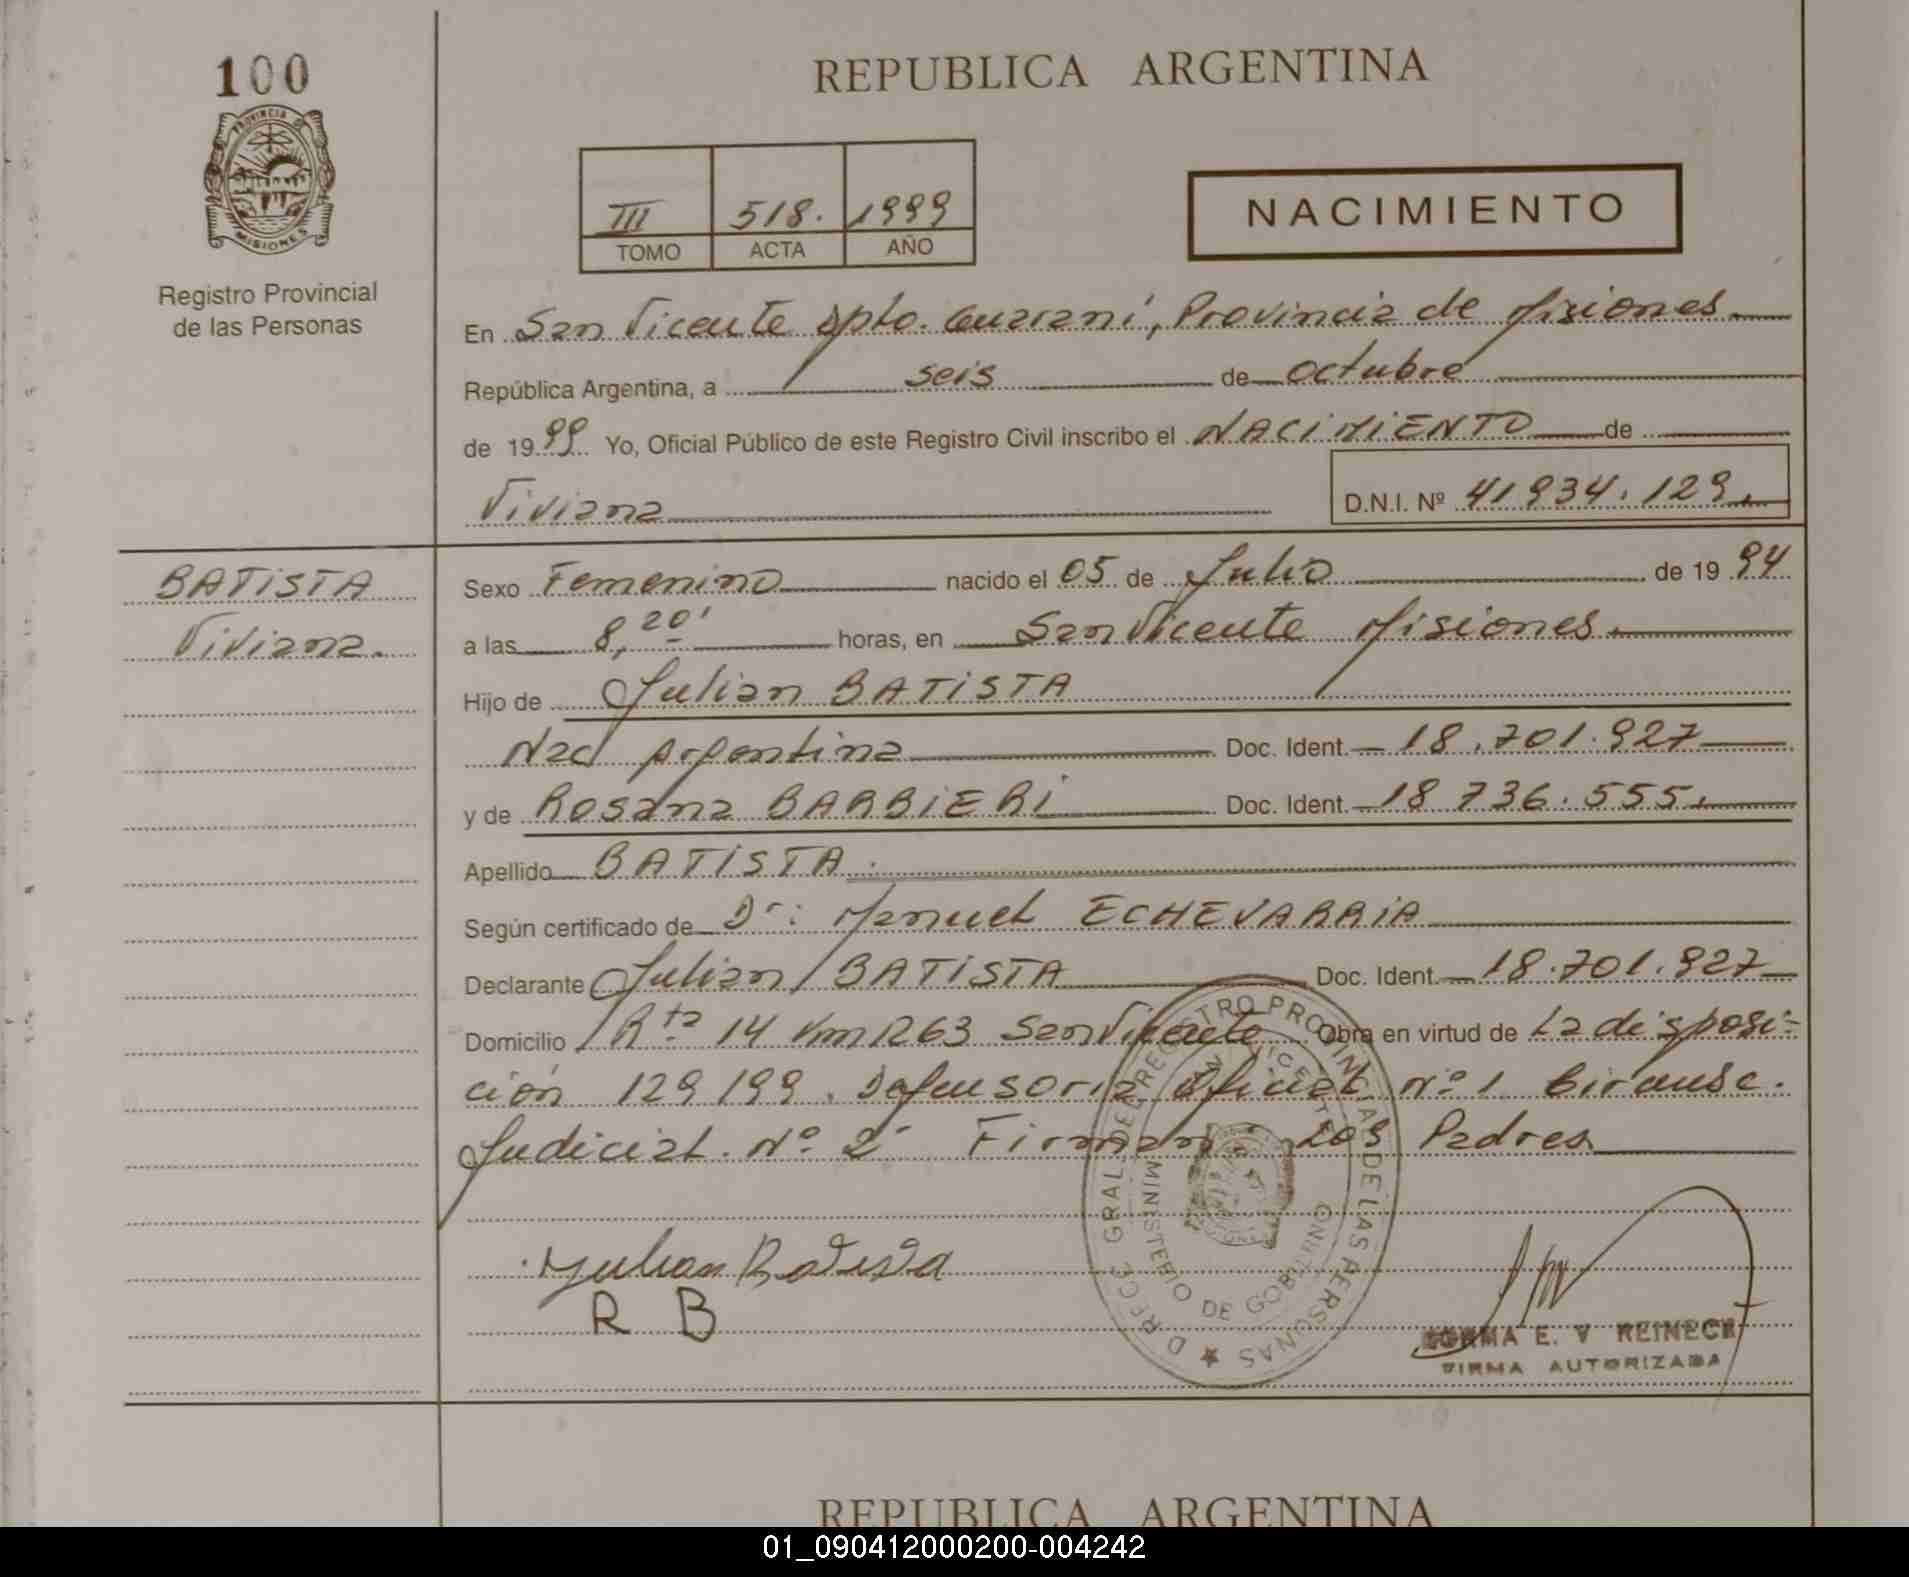 100
PROVINCIA DE
MISIONES
Registro Provincial
de las Personas
REPUBLICA ARGENTINA
III 518. 1999
TOMO ACTA AÑO
NACIMIENTO
En San Vicente Dpto. Guaraní, Provincia de Misiones.
República Argentina, a seis de octubre
de 1999 Yo, Oficial Público de este Registro Civil inscribo el NACIMIENTO de
Viviana D.N.I. Nº 41934.129.
BATISTA
Viviana.
Sexo Femenino nacido el 05 de Julio de 1994
a las 8,20' horas, en San Vicente Misiones.
Hijo de Julian BATISTA
Nac Argentina Doc. Ident. 18.701.927
y de Rosana BARBIERI Doc. Ident. 18 736.555.
Apellido BATISTA.
Según certificado de Dr: Manuel ECHEVARRIA
Declarante Julian BATISTA Doc. Ident. 18.701.927
Domicilio Rta 14 Km 1263 San Vicente Obra en virtud de La disposi-
ción 129/99. Defensoria Oficial Nº 1 Circunsc.
Judicial. Nº 2 Firman Los Padres
Julian Batista
R B
D R P C E GRAL. DEL REGISTRO PROVINCIAL DE LAS PERSONAS
SAN VICENTE
MINISTERIO DE GOBIERNO
NORMA E. V REINECK
FIRMA AUTORIZADA
REPUBLICA ARGENTINA
01_090412000200-004242